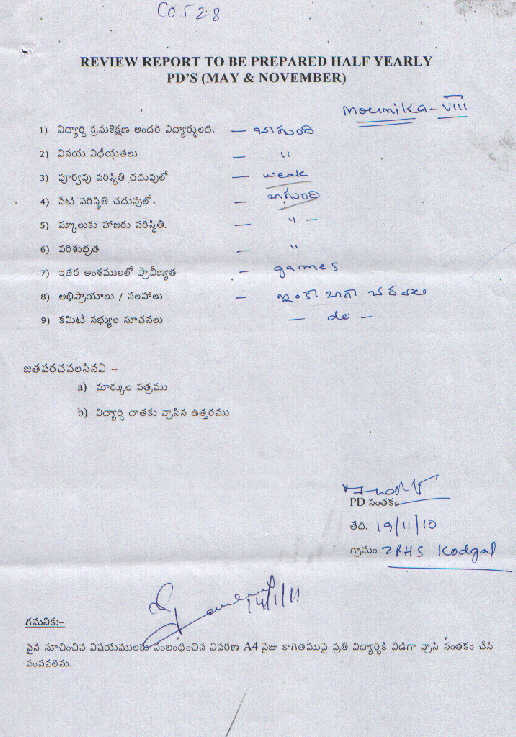 CO528
REVIEW REPORT TO BE PREPARED HALF YEARLY
PD'S (MAY & NOVEMBER)
Mounika - VIII
1) విద్యార్థి క్రమశిక్షణ అందరి విద్యార్థులలో. — బాగుంది
2) వినయ విధేయతలు — "
3) పూర్వపు పరిస్థితి చదువులో — weak
4) నేటి పరిస్థితి చదువులో. — బాగుంది
5) స్కూలుకు హాజరు పరిస్థితి. — " —
6) పరిశుభ్రత — "
7) ఇతర అంశములలో ప్రావీణ్యత — games
8) అభిప్రాయాలు / సలహాలు — ఇంకా బాగా చదవాలి
9) కమిటి సభ్యుల సూచనలు — do —
జతపరచవలసినవి :-
a) మార్కుల పత్రము
b) విద్యార్థి దాతకు వ్రాసిన ఉత్తరము
PD సంతకం
తేది. 19/11/10
గ్రామం ZPHS Kodgal
14/1/11
గమనిక:-
పైన సూచించిన విషయములకు సంబంధించిన వివరణ A4 సైజు కాగితముపై ప్రతి విద్యార్థికి విడిగా వ్రాసి సంతకం చేసి
పంపవలెను.